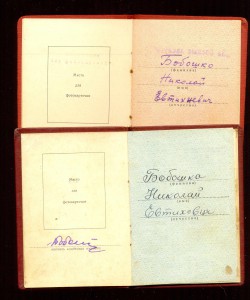 Место
для
фотокарточки
Бобошко
(фамилия)
Николай
(имя)
Евтихиевич
(отчество)
Место
для
фотокарточки
Бобошко
(фамилия)
Николай
(имя)
Евтихович
(отчество)